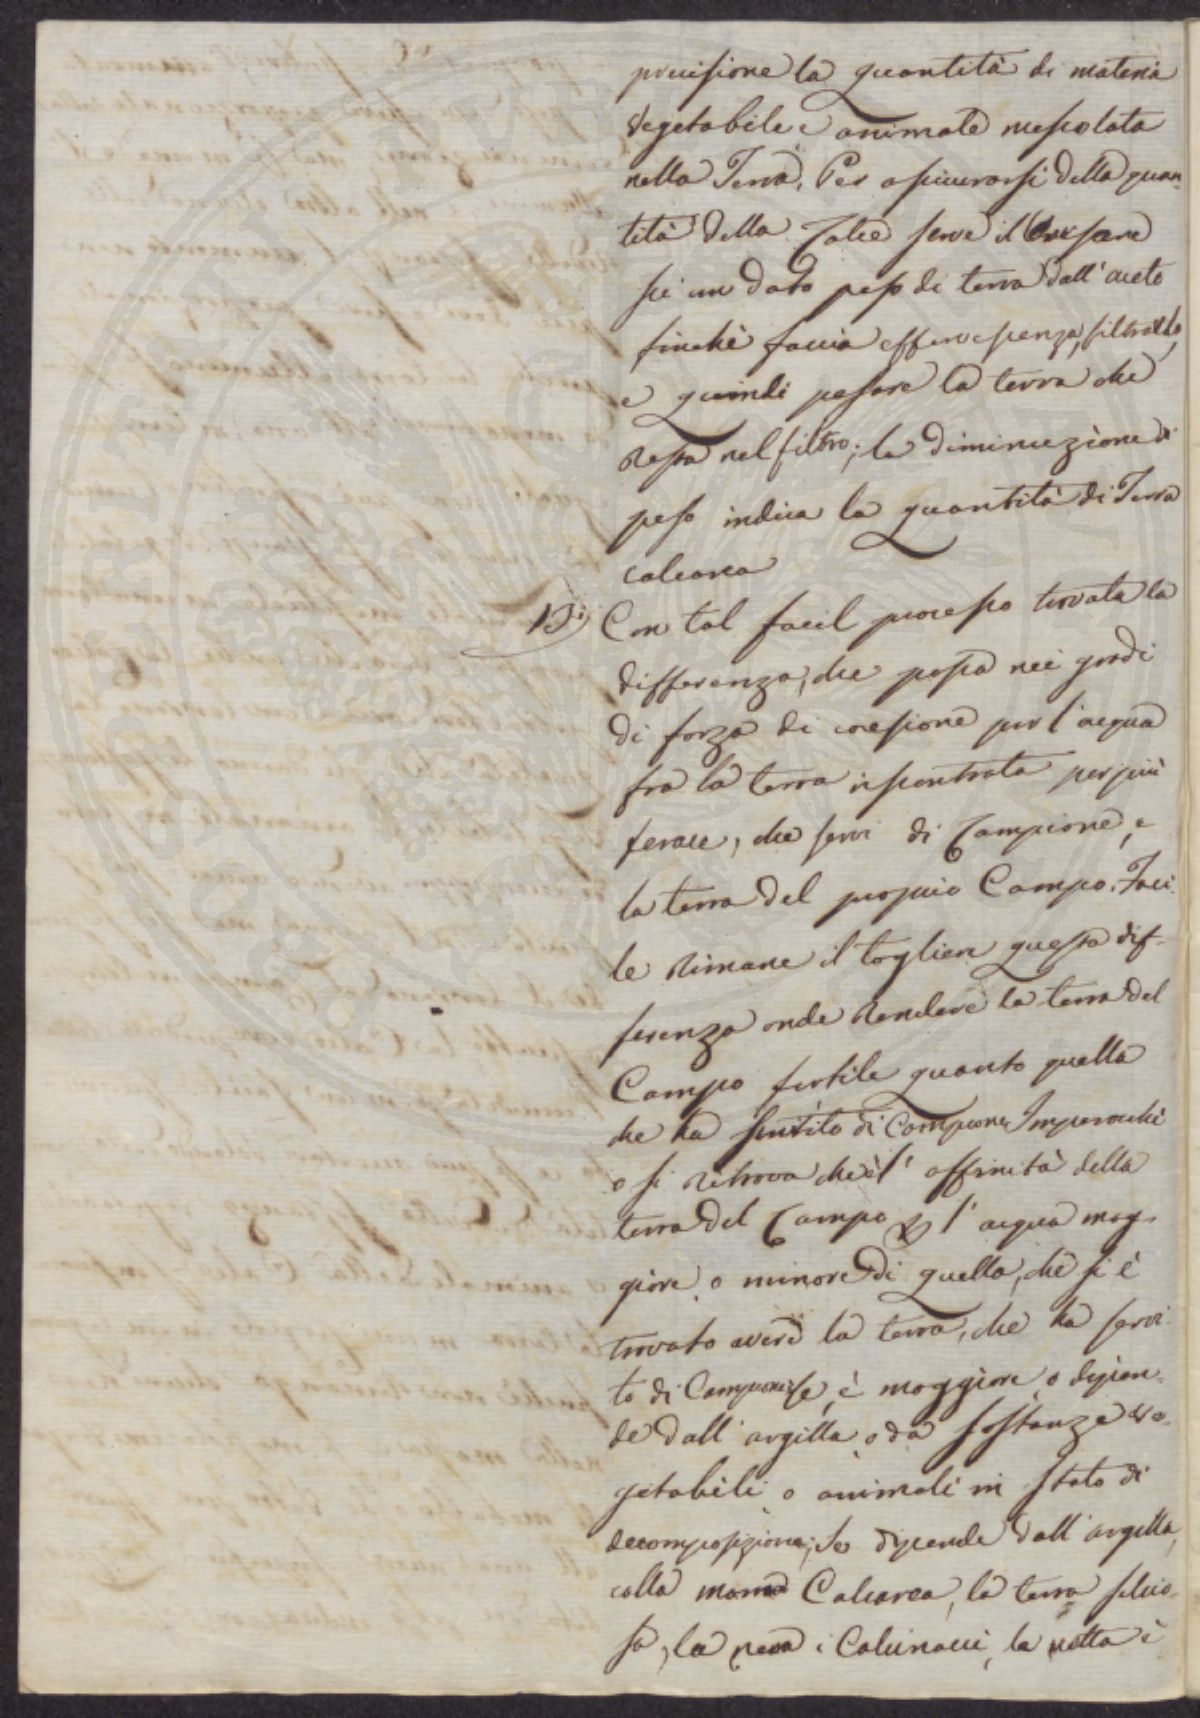 precisione la quantità di materia
vegetabile e animale mescolata
nella Terra. Per assicurarsi della quan-
tità della Calce serve il versare
su un dato peso di terra dall'aceto
finchè faccia effervescenza, filtrarlo,
e quindi pesare la terra che
resta nel filtro; la diminuzione di
peso indica la quantità di Terra
calcarea
13.° Con tal facil processo trovata la
differenza, che passa nei gradi
di forza di coesione per l'acqua
fra la terra riscontrata per più
ferace, che servì di Campione, e
la terra del proprio Campo. Faci-
le rimane il toglier questa dif-
ferenza onde rendere la terra del
Campo fertile quanto quella
che ha servito di Campione. Imperocchè
o si ritrova che è l'affinità della
terra del Campo p l'acqua mag-
giore o minore di quella, che si è
trovato avere la terra, che ha servi-
to di Campione, se è maggiore o dipen-
de dall'argilla o da sostanze ve-
getabili o animali in stato di
decomposizione; Se dipende dall'argilla,
colla marna Calcarea, la terra silicio-
sa, la rena i Calcinacci, la è